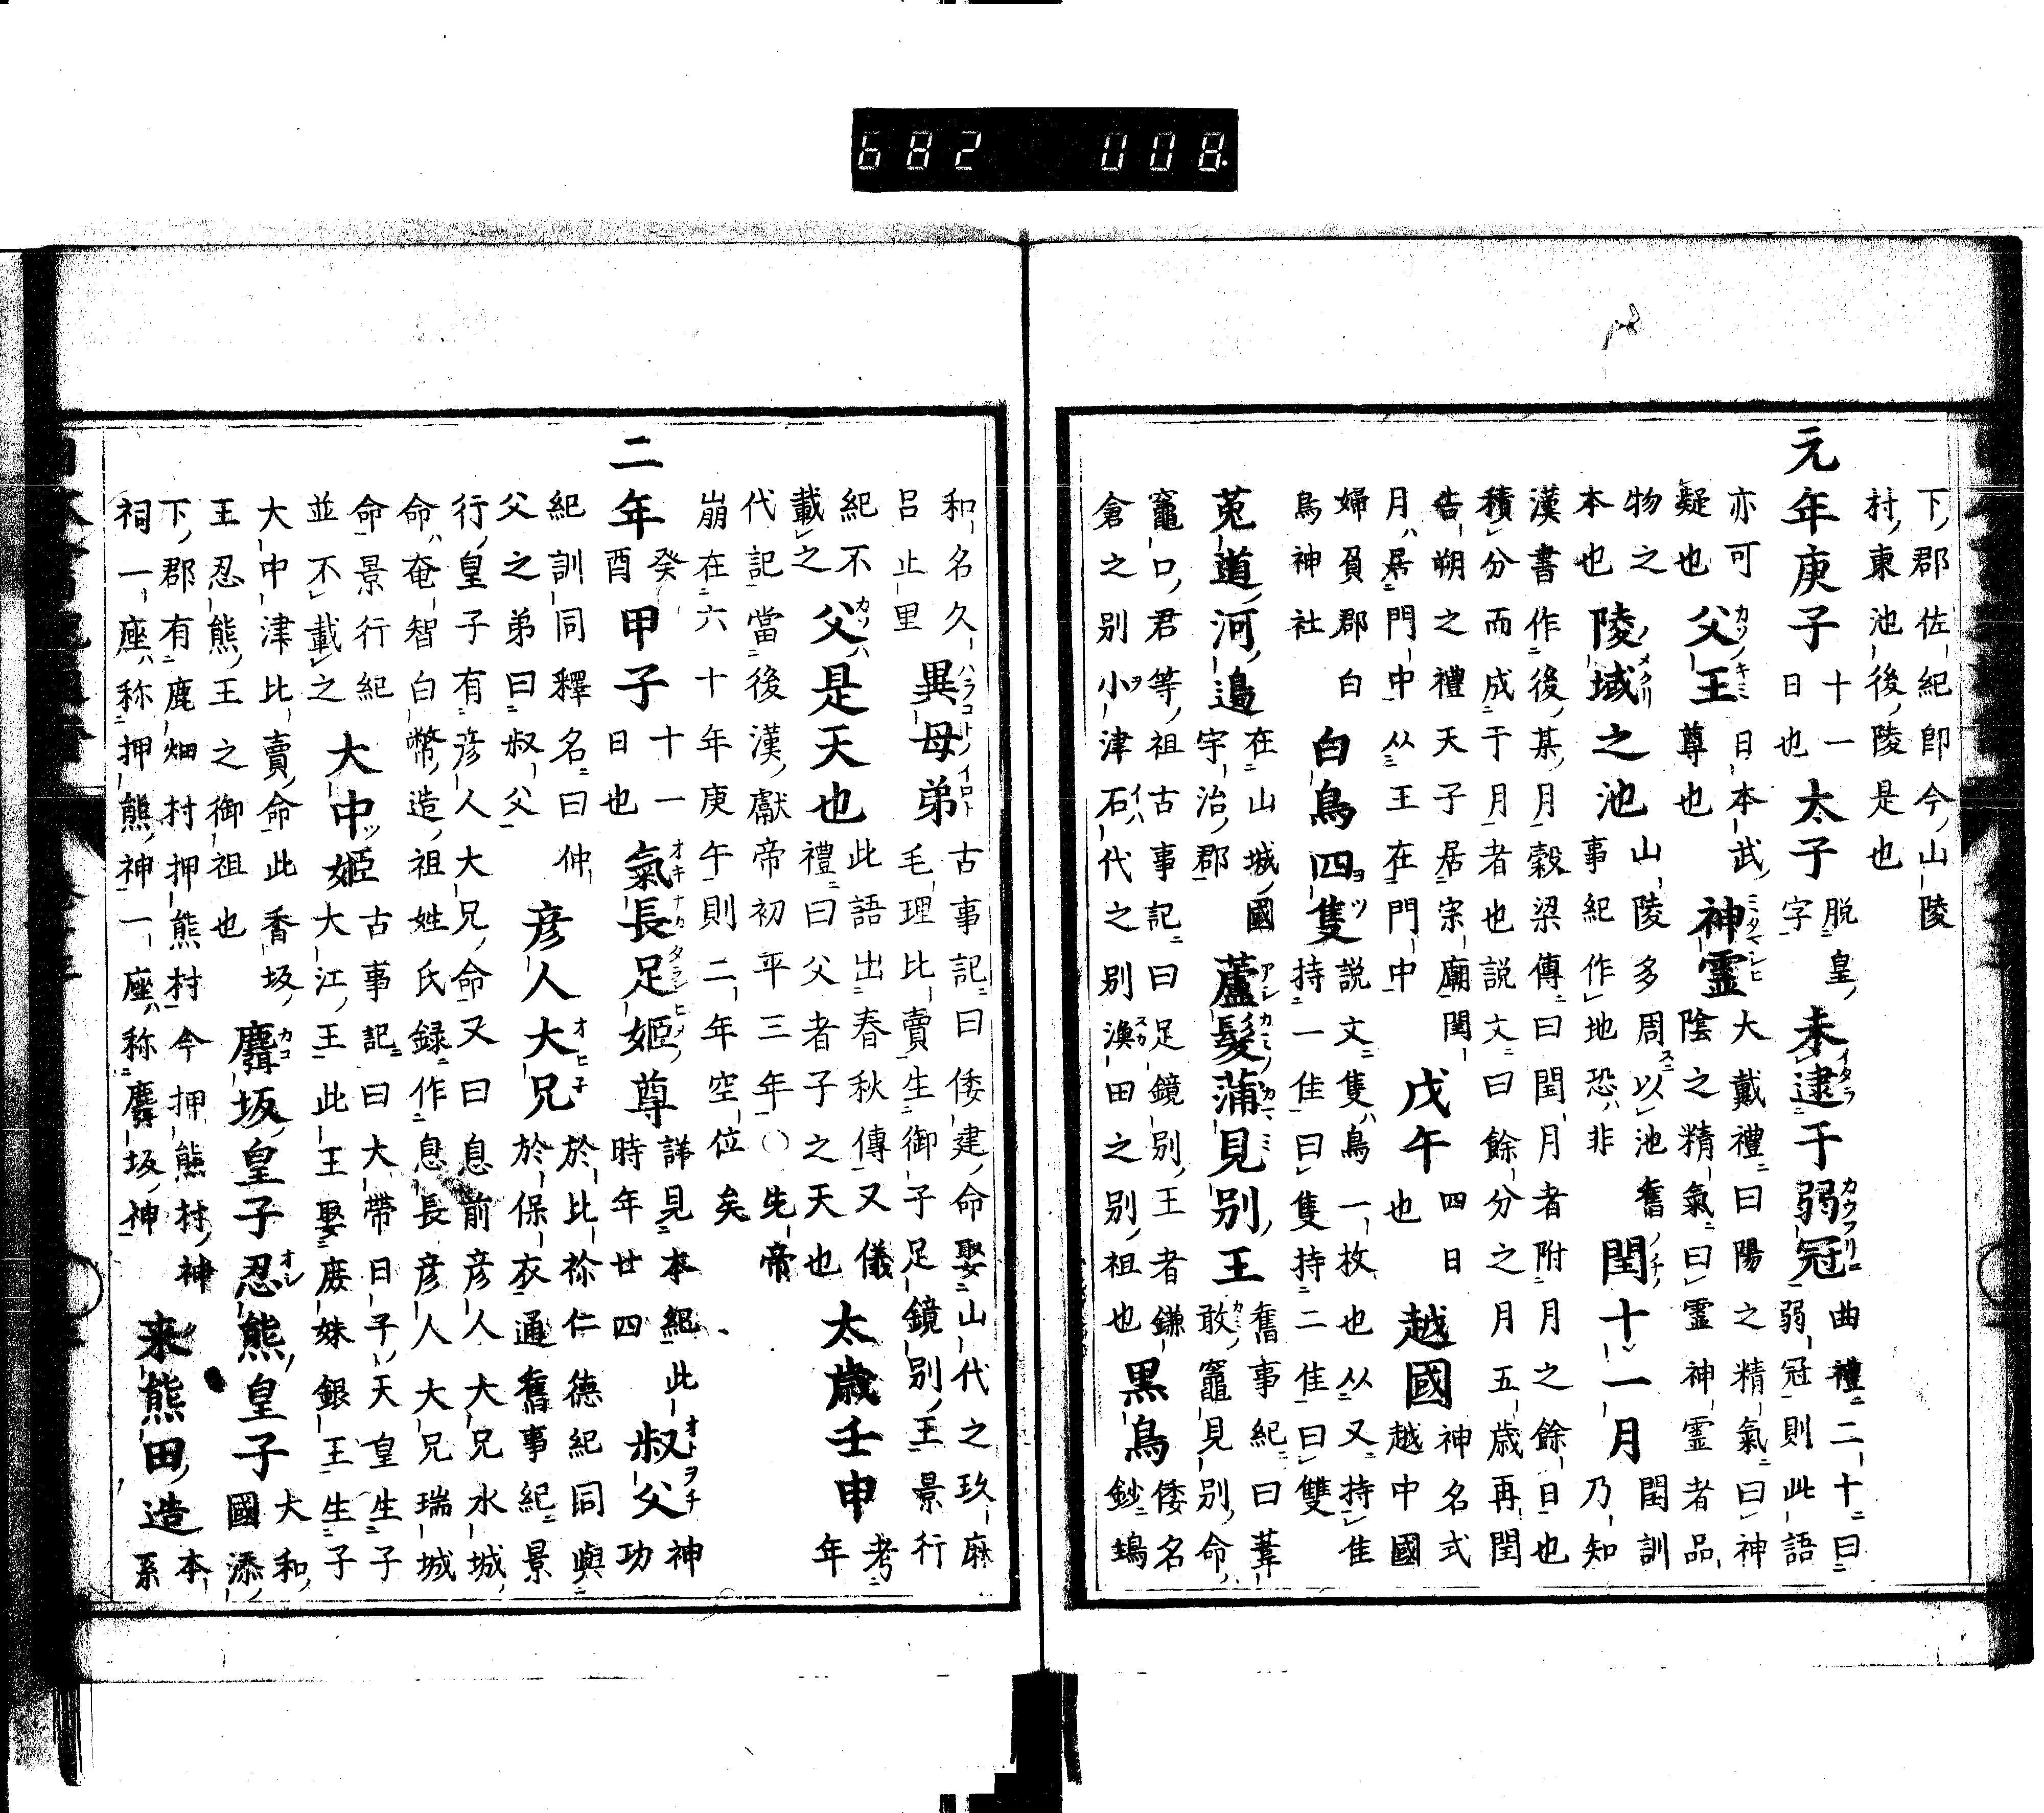 682 008.
下郡佐紀即今山陵
村東池後陵是也
元年庚子 十一日也 太子 脱皇字 未逮于弱冠 曲禮二十曰弱冠則此語
亦可疑也 父王 日本武尊也 神霊 大戴禮曰陽之精氣曰神陰之精氣曰霊神霊者品
物之本也 陵域之池 山陵多周以池舊事紀作地恐非 閏十一月 閏訓乃知
漢書作後某月穀梁傳曰閏月者附月之餘日也
積分而成于月者也説文曰餘分之月五歳再閏
告朔之禮天子居宗廟閏
月居門中从王在門中 戊午 四日也 越國 神名式越中國
婦負郡白鳥神社 白鳥四隻 説文隻鳥一枚也从又持隹持一隹曰隻持二隹曰雙
菟道河邉 在山城國宇治郡 蘆髮蒲見別王 舊事紀曰葦敢竈見別命
竈口君等祖古事記曰足鏡別王者鎌
倉之別小津石代之別漁田之別祖也 黒鳥 倭名鈔鴆
和名久呂止里 異母弟 古事記曰倭建命娶山代之玖麻毛理比賣生御子足鏡別王景行
紀不載之 父是天也 此語出春秋傳又儀禮曰父者子之天也 太歳壬申 考年
代記當後漢獻帝初平三年〇先帝
崩在六十年庚午則二年空位矣
二年 癸酉 甲子 十一日也 氣長足姫尊 諱見本紀此時年廿四 叔父 神功
紀訓同釋名曰仲父之弟曰叔父 彦人大兄 於比祢仁德紀同與於保衣通舊事紀景
行皇子有彦人大兄命又曰息前彦人大兄水城
命奄智白幣造祖姓氏録作息長彦人大兄瑞城
命景行紀並不載之 大中姫 古事記曰大帶日子天皇生子大江王此王娶庶妹銀王生子
大中津比賣命此香坂王忍熊王之御祖也 麛坂皇子忍熊皇子 大和國添
下郡有鹿畑村押熊村今押熊村神
祠一座称押熊神一座称麛坂神 来熊田造 本系